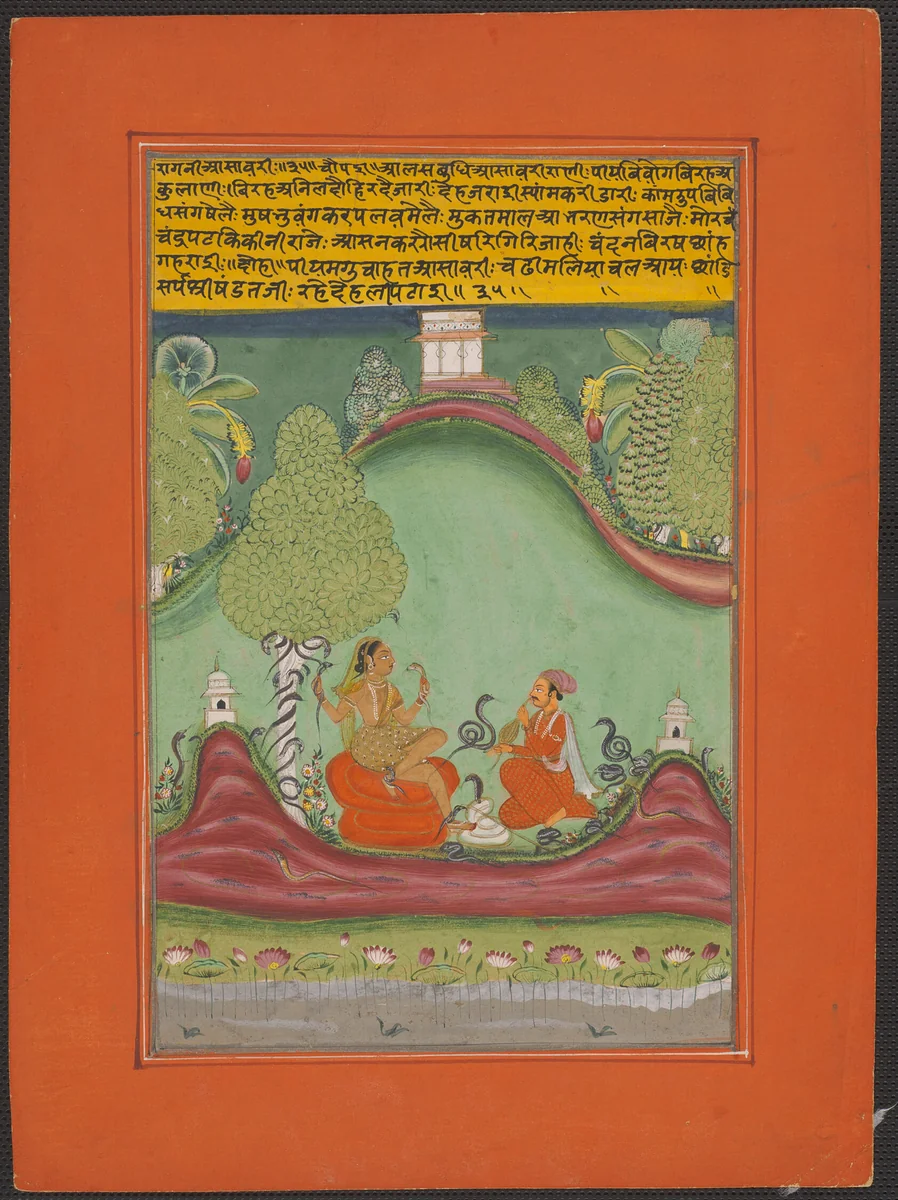 रागनीआसावरी॥३५॥चौपइ॥आलसबुधिआसावरीराणी: पीयबिवोगबिरहअ
कुलाणी: बिरहअनिलदौहिरदैजारी: देहजराइस्यांमकरीडारी: कांमरुपबिबि
धसंगषेलै: मुषभुवंगकरपलवमेलै: मुकतमालआभरणसंगसाजै: मोरचं
चंद्रपटकिंकीनीराजे: आसनकरसौसीषरिगिरिजाही: चंदनबिरषछांह
गहराइ:॥दौहा॥पीयमगुचाहतआसावरी: चढीमलियाचलआय: छांडि
सर्पश्रीषंडतजी: रहेदेहलपिटाइ॥३५॥ ॥ ॥